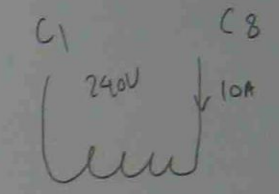 C1 C8
240V 10A